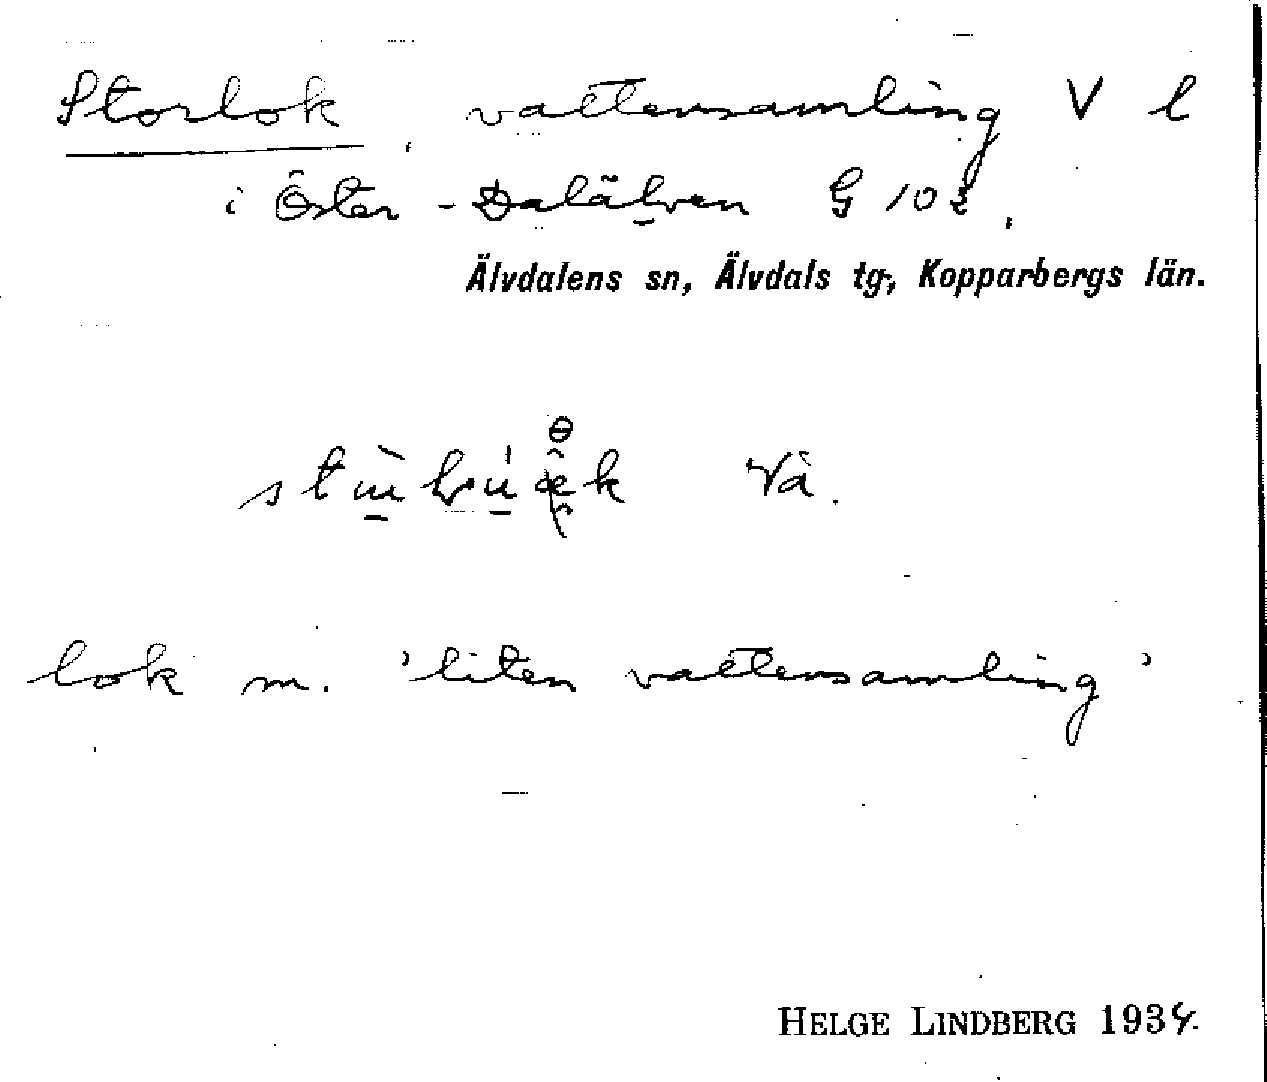 Storlok, vattensamling V l
i Öster-Dalälven G 102,
Älvdalens sn, Älvdals tg., Kopparbergs län.
Vå.
lok m. 'liten vattensamling'
HELGE LINDBERG 1934.